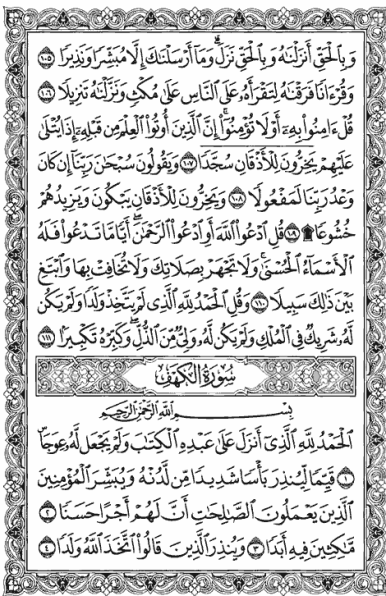 وَبِٱلْحَقِّ أَنزَلْنَٰهُ وَبِٱلْحَقِّ نَزَلَ ۗ وَمَآ أَرْسَلْنَٰكَ إِلَّا مُبَشِّرًا وَنَذِيرًا ١٠٥
وَقُرْءَانًا فَرَقْنَٰهُ لِتَقْرَأَهُۥ عَلَى ٱلنَّاسِ عَلَىٰ مُكْثٍ وَنَزَّلْنَٰهُ تَنزِيلًا ١٠٦
قُلْ ءَامِنُوا۟ بِهِۦٓ أَوْ لَا تُؤْمِنُوٓا۟ ۚ إِنَّ ٱلَّذِينَ أُوتُوا۟ ٱلْعِلْمَ مِن قَبْلِهِۦٓ إِذَا يُتْلَىٰ
عَلَيْهِمْ يَخِرُّونَ لِلْأَذْقَانِ سُجَّدًا ١٠٧ وَيَقُولُونَ سُبْحَٰنَ رَبِّنَآ إِن كَانَ
وَعْدُ رَبِّنَا لَمَفْعُولًا ١٠٨ وَيَخِرُّونَ لِلْأَذْقَانِ يَبْكُونَ وَيَزِيدُهُمْ
خُشُوعًا ۩ ١٠٩ قُلِ ٱدْعُوا۟ ٱللَّهَ أَوِ ٱدْعُوا۟ ٱلرَّحْمَٰنَ ۖ أَيًّا مَّا تَدْعُوا۟ فَلَهُ
ٱلْأَسْمَآءُ ٱلْحُسْنَىٰ ۚ وَلَا تَجْهَرْ بِصَلَاتِكَ وَلَا تُخَافِتْ بِهَا وَٱبْتَغِ
بَيْنَ ذَٰلِكَ سَبِيلًا ١١٠ وَقُلِ ٱلْحَمْدُ لِلَّهِ ٱلَّذِى لَمْ يَتَّخِذْ وَلَدًا وَلَمْ يَكُن
لَّهُۥ شَرِيكٌ فِى ٱلْمُلْكِ وَلَمْ يَكُن لَّهُۥ وَلِىٌّ مِّنَ ٱلذُّلِّ ۖ وَكَبِّرْهُ تَكْبِيرًۢا ١١١
سُورَةُ ٱلْكَهْفِ
بِسْمِ ٱللَّهِ ٱلرَّحْمَٰنِ ٱلرَّحِيمِ
ٱلْحَمْدُ لِلَّهِ ٱلَّذِىٓ أَنزَلَ عَلَىٰ عَبْدِهِ ٱلْكِتَٰبَ وَلَمْ يَجْعَل لَّهُۥ عِوَجَا ۜ
١ قَيِّمًا لِّيُنذِرَ بَأْسًا شَدِيدًا مِّن لَّدُنْهُ وَيُبَشِّرَ ٱلْمُؤْمِنِينَ
ٱلَّذِينَ يَعْمَلُونَ ٱلصَّٰلِحَٰتِ أَنَّ لَهُمْ أَجْرًا حَسَنًا ٢
مَّٰكِثِينَ فِيهِ أَبَدًا ٣ وَيُنذِرَ ٱلَّذِينَ قَالُوا۟ ٱتَّخَذَ ٱللَّهُ وَلَدًا ٤